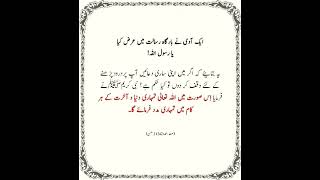 ایک آدمی نے بارگاہ رسالت میں عرض کیا
یا رسول اللہ!
یہ بتایئے کہ اگر میں اپنی ساری دعائیں آپ پر درود پڑھنے
کے لئے وقف کر دوں تو کیا حکم ہے؟ نبی کریم ﷺ نے
فرمایا اِس صورت میں اللہ تعالیٰ تمہاری دنیا و آخرت کے ہر
کام میں تمہاری مدد فرمائے گا۔